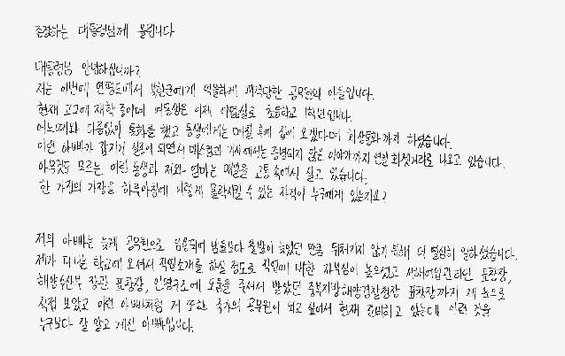 존경하는 대통령님께 올립니다
대통령님 안녕하십니까?
저는 이번에 연평도에서 북한군에게 억울하게 피격당한 공무원의 아들입니다.
현재 고2에 재학 중이며 여동생은 이제 여덟살로 초등학교 1학년입니다.
여느때와 다름없이 통화를 했고 동생에게는 며칠 후에 집에 오겠다며 화상통화까지 하였습니다.
이런 아빠가 갑자기 실종이 되면서 매스컴과 기사에서는 증명되지 않은 이야기까지 연일 화젯거리로 나오고 있습니다.
아무것도 모르는 어린 동생과 저와 엄마는 매일을 고통 속에서 살고 있습니다.
한 가정의 가장을 하루아침에 이렇게 몰락시킬 수 있는 자격이 누구에게 있는지요?
저의 아빠는 늦게 공무원으로 임용되어 남들보다 출발이 늦었던 만큼 뒤처지지 않기 위해 더 열심히 일하셨습니다.
제가 다니는 학교에 오셔서 직업소개를 하실 정도로 직업에 대한 자부심이 높으셨고 서해어업관리단 표창장,
해양수산부 장관 표창장, 인명구조에 도움을 주셔서 받았던 중부지방해양경찰청장 표창장까지 제 눈으로
직접 보았고 이런 아빠처럼 저 또한 국가의 공무원이 되고 싶어서 현재 준비하고 있는데 이런 것을
누구보다 잘 알고 계신 아빠입니다.